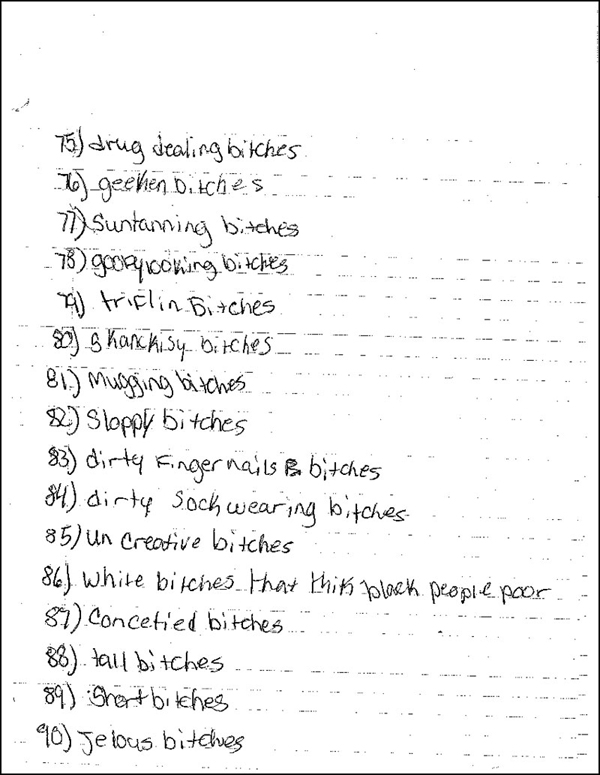 75) drug dealing bitches
76) geeken bitches
77) Suntanning bitches
78) goofylooking bitches
79) triflin Bitches
80) Skanckisy bitches
81.) Mugging bitches
82) Sloppy bitches
83) dirty Finger nails bitches
84) dirty Sock wearing bitches
85) Un Creative bitches
86) White bitches that think black people poor
87) Concetied bitches
88) tall bitches
89) Short bitches
90) Jelous bitches